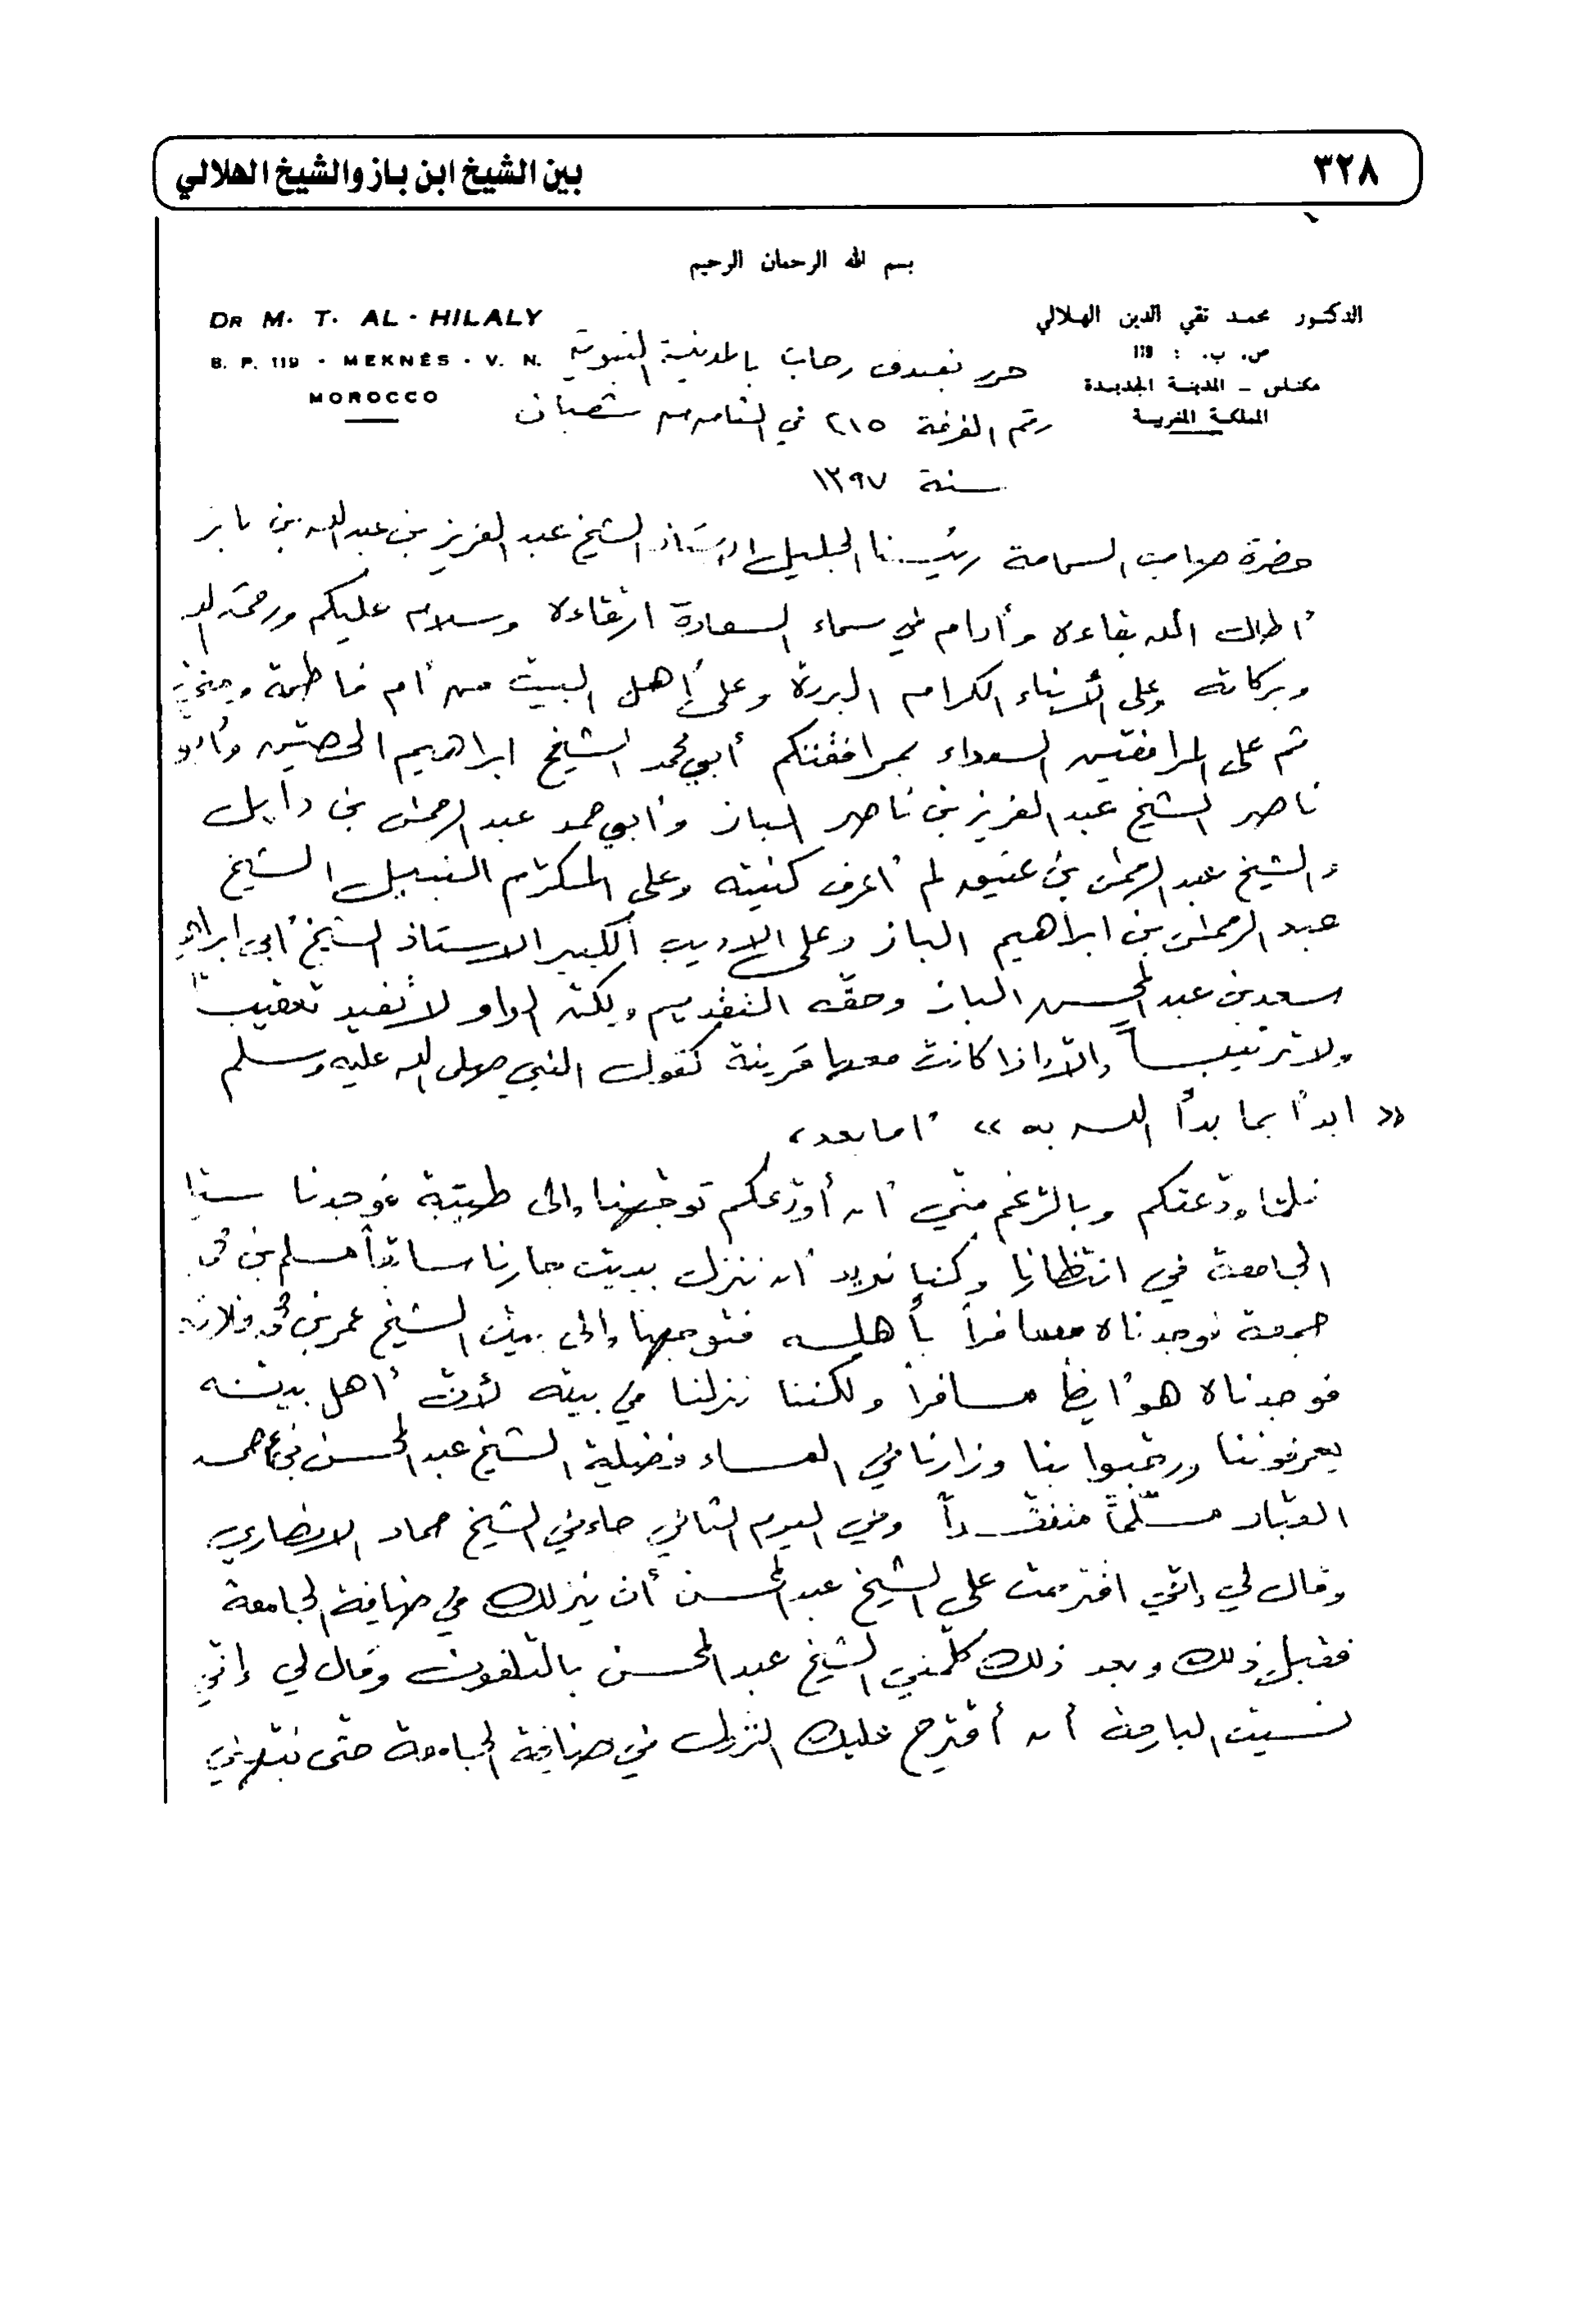 ٣٢٨
بين الشيخ ابن باز والشيخ الهلالي
بسم الله الرحمان الرحيم
الدكتور محمد تقي الدين الهلالي
ص. ب. : 119
مكناس - المدينة الجديدة
المملكة المغربية
DR M. T. AL-HILALY
B. P. 119 - MEKNÈS - V. N.
MOROCCO
حرر بفندق رحاب بالمدينة النبوية
رقم الغرفة ٢١٥ في الثامن من شعبان
سنة ١٣٩٧
حضرة صاحب السماحة رئيسنا الجليل الأستاذ الشيخ عبد العزيز بن عبد الله بن باز
أطال الله بقاءه وأدام في سماء السعادة ارتقاءه وسلام عليكم ورحمة الله
وبركاته وعلى الأبناء الكرام البررة وعلى أهل البيت من أم فاطمة
ثم على المرافقين السعداء بمرافقتكم أبي محمد الشيخ ابراهيم الحصين وأبو
ناصر الشيخ عبد العزيز بن ناصر الباز وأبي حمد عبد الرحمٰن بن دايل
والشيخ عبد الرحمٰن بن عتيق لم أعرف كنيته وعلى المكرّم النبيل الشيخ
عبد الرحمٰن بن ابراهيم الباز وعلى الاديب الكبير الاستاذ الشيخ أبي ابراهيم
سعد بن عبد المحسن الباز وحقه التقديم ولكن الواو لا تفيد تعقيباً
ولا ترتيباً إلّا إذا كانت معها قرينة كقول النبي صلى الله عليه وسلم
« ابدأ بما بدأ الله به » أما بعد،
فلما ودّعتكم وبالرّغم منّي أن أودّعكم توجّهنا إلى طيبة فوجدنا سيّارة
الجامعة في انتظارنا وكنا نريد أن ننزل ببيت جارنا سابقاً مسلم بن
جمعة فوجدناه مسافراً بأهله فتوجهنا إلى بيت الشيخ عمر بن محمد فلاته
فوجدناه هو أيضاً مسافراً ولكننا نزلنا في بيته لأنّ أهل بيته
يعرفوننا ورحّبوا بنا وزارنا في المساء فضيلة الشيخ عبد المحسن بن حمد
العبّاد مسلّماً متفقّداً وفي اليوم الثاني جاءني الشيخ حماد الانصاري
وقال لي إنّي اقترحت على الشيخ عبد المحسن أن ينزلك في ضيافة الجامعة
فقبل ذلك وبعد ذلك كلّمني الشيخ عبد المحسن بالتلفون وقال لي إنّي
نسيت البارحة أن أقترح عليك النزول في ضيافة الجامعة حتى